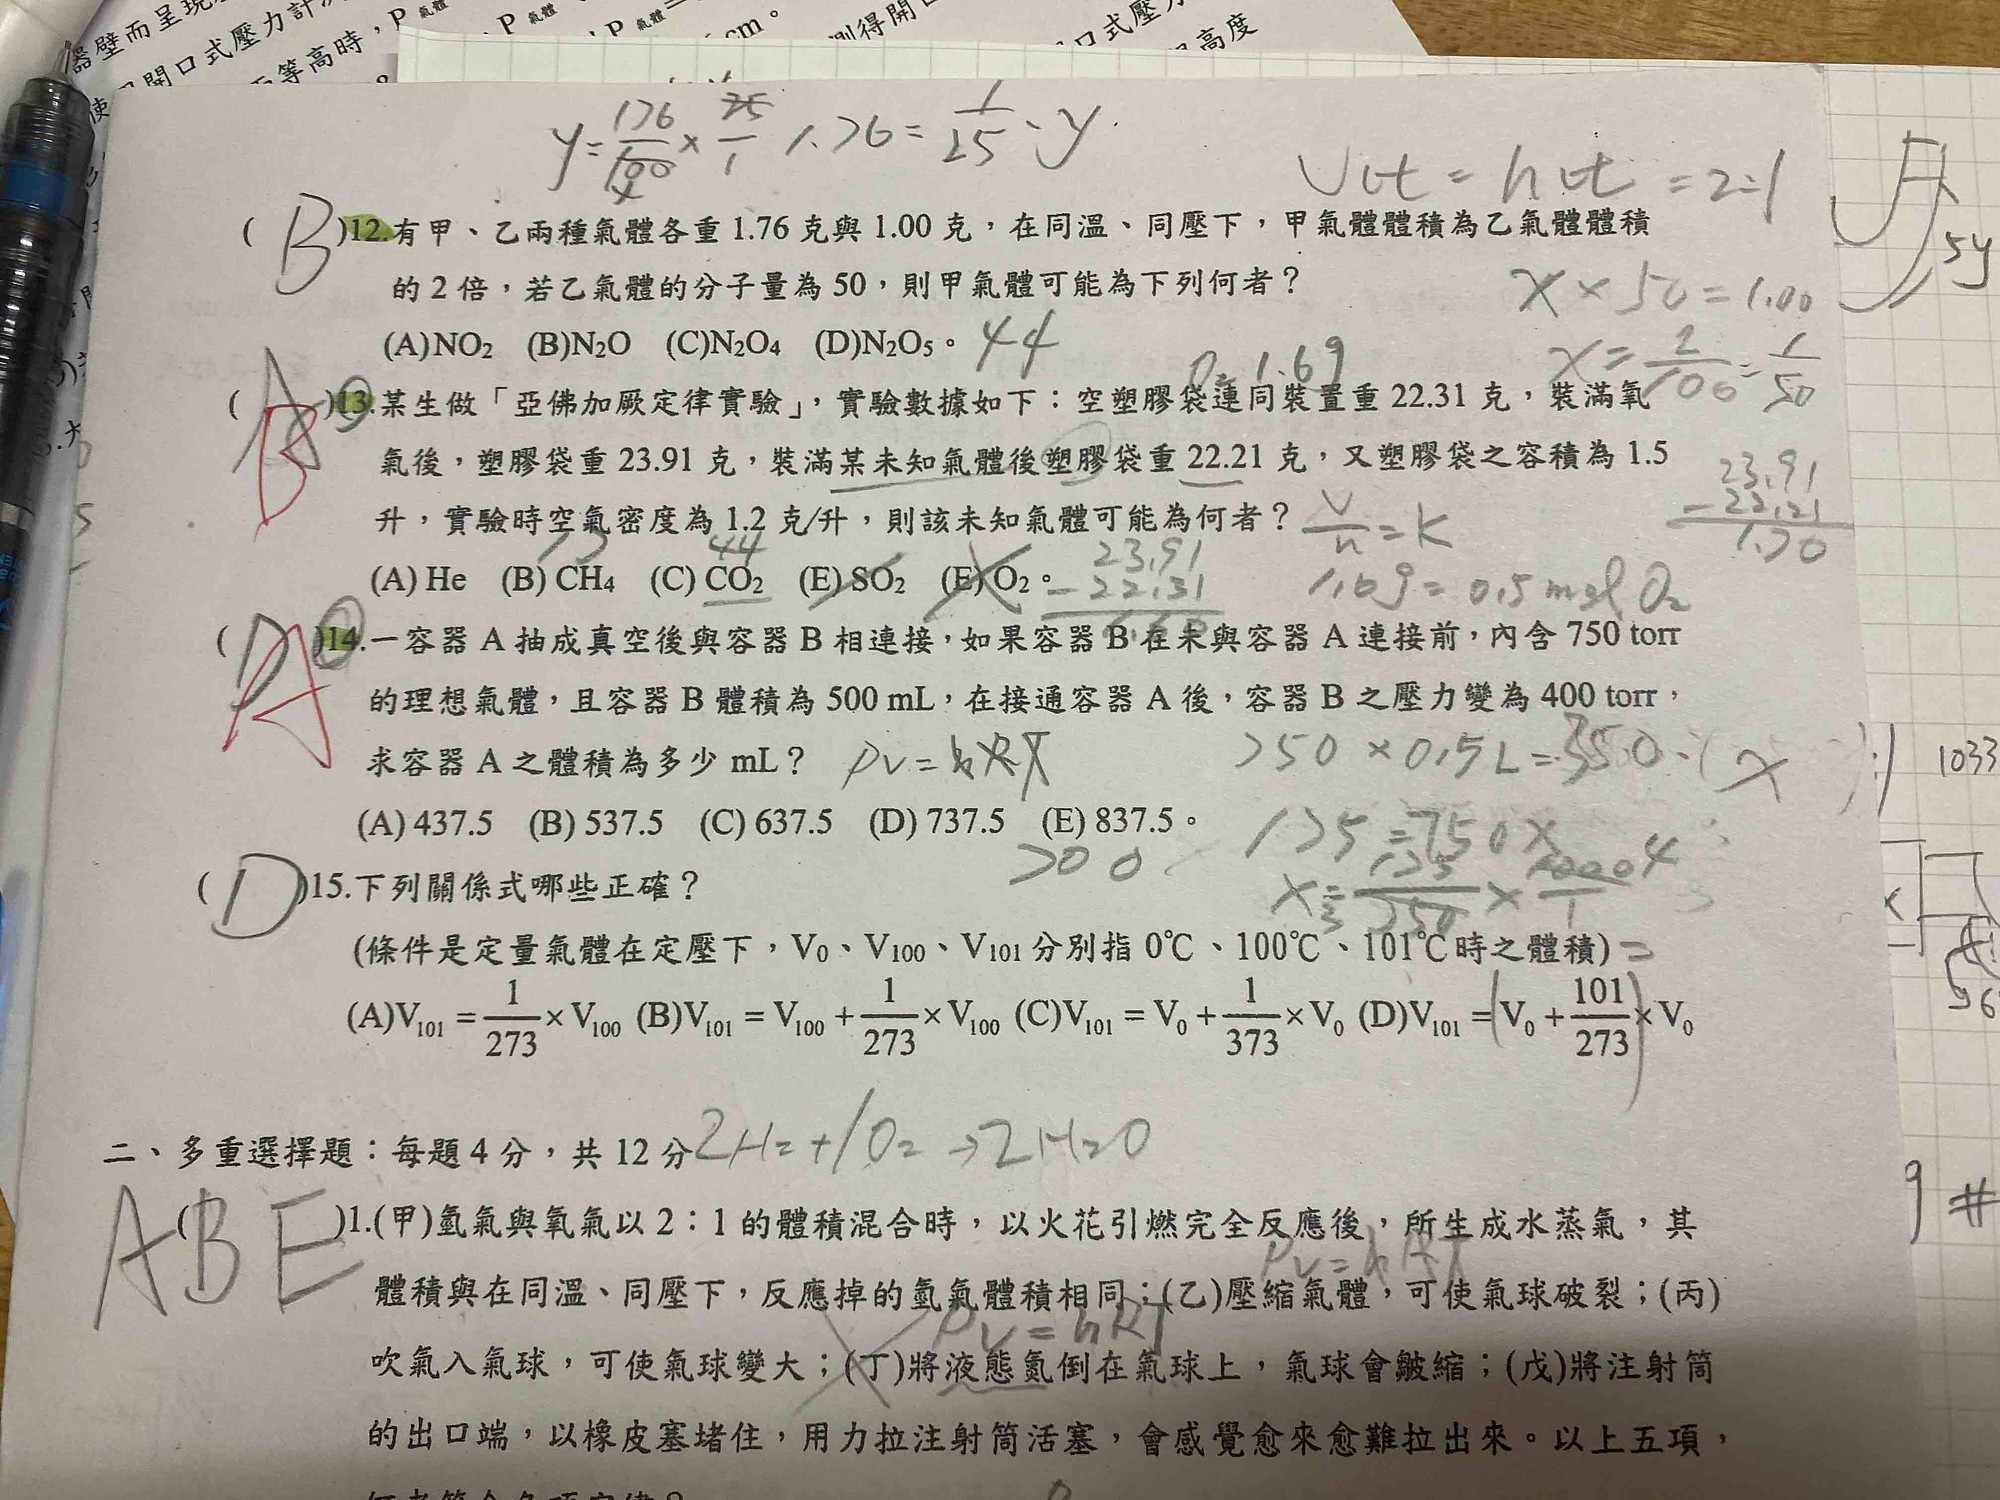 器壁而呈現
開口式壓力計
等高時，P氣體
P氣體
P氣體=
cm。
測得開口
口式壓力
高度
y=176/100×25/1 1.76=1/25·y
V比=n比=2:1
(B)12.有甲、乙兩種氣體各重 1.76 克與 1.00 克，在同溫、同壓下，甲氣體體積為乙氣體體積
的 2 倍，若乙氣體的分子量為 50，則甲氣體可能為下列何者？
x×50=1.00
(A)NO₂ (B)N₂O (C)N₂O₄ (D)N₂O₅。 44
x=2/100=1/50
O₂ 1.6g
(A B)13.某生做「亞佛加厥定律實驗」，實驗數據如下：空塑膠袋連同裝置重 22.31 克，裝滿氧
氣後，塑膠袋重 23.91 克，裝滿某未知氣體後塑膠袋重 22.21 克，又塑膠袋之容積為 1.5
23.91
-22.21
1.70
升，實驗時空氣密度為 1.2 克/升，則該未知氣體可能為何者？ V/n=K
44
(A) He (B) CH₄ (C) CO₂ (E) SO₂ (E) O₂。
23.91
-22.31
1.60
1.6g=0.5mol O₂
(D A)14.一容器 A 抽成真空後與容器 B 相連接，如果容器 B 在未與容器 A 連接前，內含 750 torr
的理想氣體，且容器 B 體積為 500 mL，在接通容器 A 後，容器 B 之壓力變為 400 torr，
求容器 A 之體積為多少 mL？ PV=nRT
750×0.5L=350
(A) 437.5 (B) 537.5 (C) 637.5 (D) 737.5 (E) 837.5。
700
175=750x
(D)15.下列關係式哪些正確？
(條件是定量氣體在定壓下，V₀、V₁₀₀、V₁₀₁ 分別指 0℃、100℃、101℃時之體積)
(A)V₁₀₁ = 1/273 × V₁₀₀ (B)V₁₀₁ = V₁₀₀ + 1/273 × V₁₀₀ (C)V₁₀₁ = V₀ + 1/373 × V₀ (D)V₁₀₁ = (V₀ + 101/273) × V₀
二、多重選擇題：每題 4 分，共 12 分 2H₂+1O₂→2H₂O
(ABE)1.(甲)氫氣與氧氣以 2：1 的體積混合時，以火花引燃完全反應後，所生成水蒸氣，其
PV=nRT
體積與在同溫、同壓下，反應掉的氫氣體積相同；(乙)壓縮氣體，可使氣球破裂；(丙)
PV=nRT
吹氣入氣球，可使氣球變大；(丁)將液態氮倒在氣球上，氣球會皺縮；(戊)將注射筒
的出口端，以橡皮塞堵住，用力拉注射筒活塞，會感覺愈來愈難拉出來。以上五項，
5y
1033
9 #